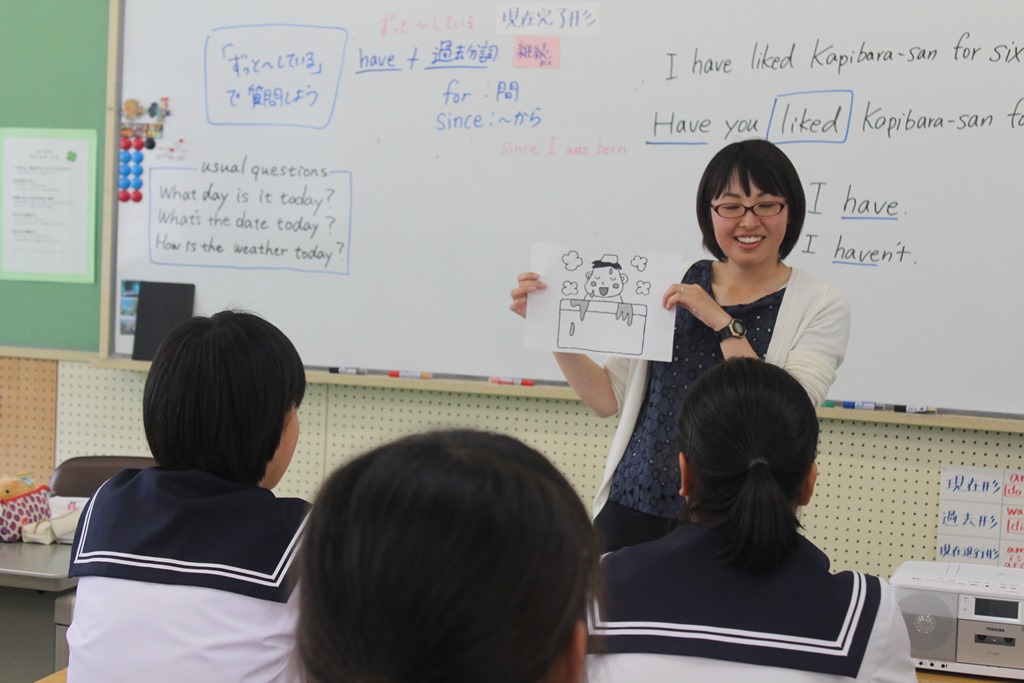 ずっと〜している
現在完了形
「ずっと〜している」
で質問しよう
have + 過去分詞
継続
for : 間
since : 〜から
since I was born
I have liked Kapibara-san for six
Have you liked Kapibara-san fo
I have.
I haven't.
usual questions
What day is it today?
What's the date today?
How is the weather today?
現在形
過去形
現在進行形
am
is
TOSHIBA